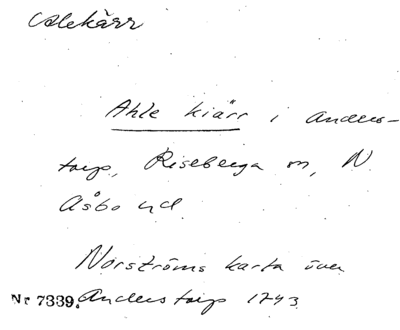 Alekärr
Ahle kiärr i Anders-
torp, Riseberga sn, N
Åsbo hd
Norströms karta över
Nr 7339. Anderstorp 1743